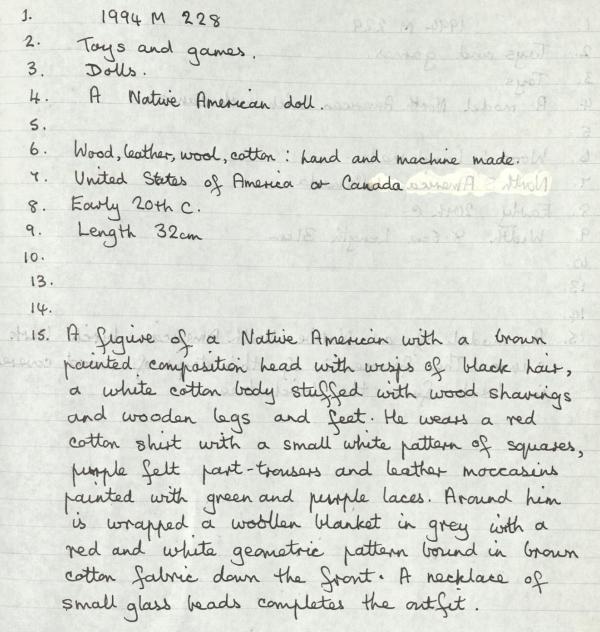 1. 1994 M 228
2. Toys and games.
3. Dolls.
4. A Native American doll.
5.
6. Wood, leather, wool, cotton : hand and machine made.
7. United States of America or Canada
8. Early 20th C.
9. Length 32cm
10.
13.
14.
15. A figure of a Native American with a brown
painted composition head with wisps of black hair,
a white cotton body stuffed with wood shavings
and wooden legs and feet. He wears a red
cotton shirt with a small white pattern of squares,
purple felt part-trousers and leather moccasins
painted with green and purple laces. Around him
is wrapped a woollen blanket in grey with a
red and white geometric pattern bound in brown
cotton fabric down the front. A necklace of
small glass beads completes the outfit.